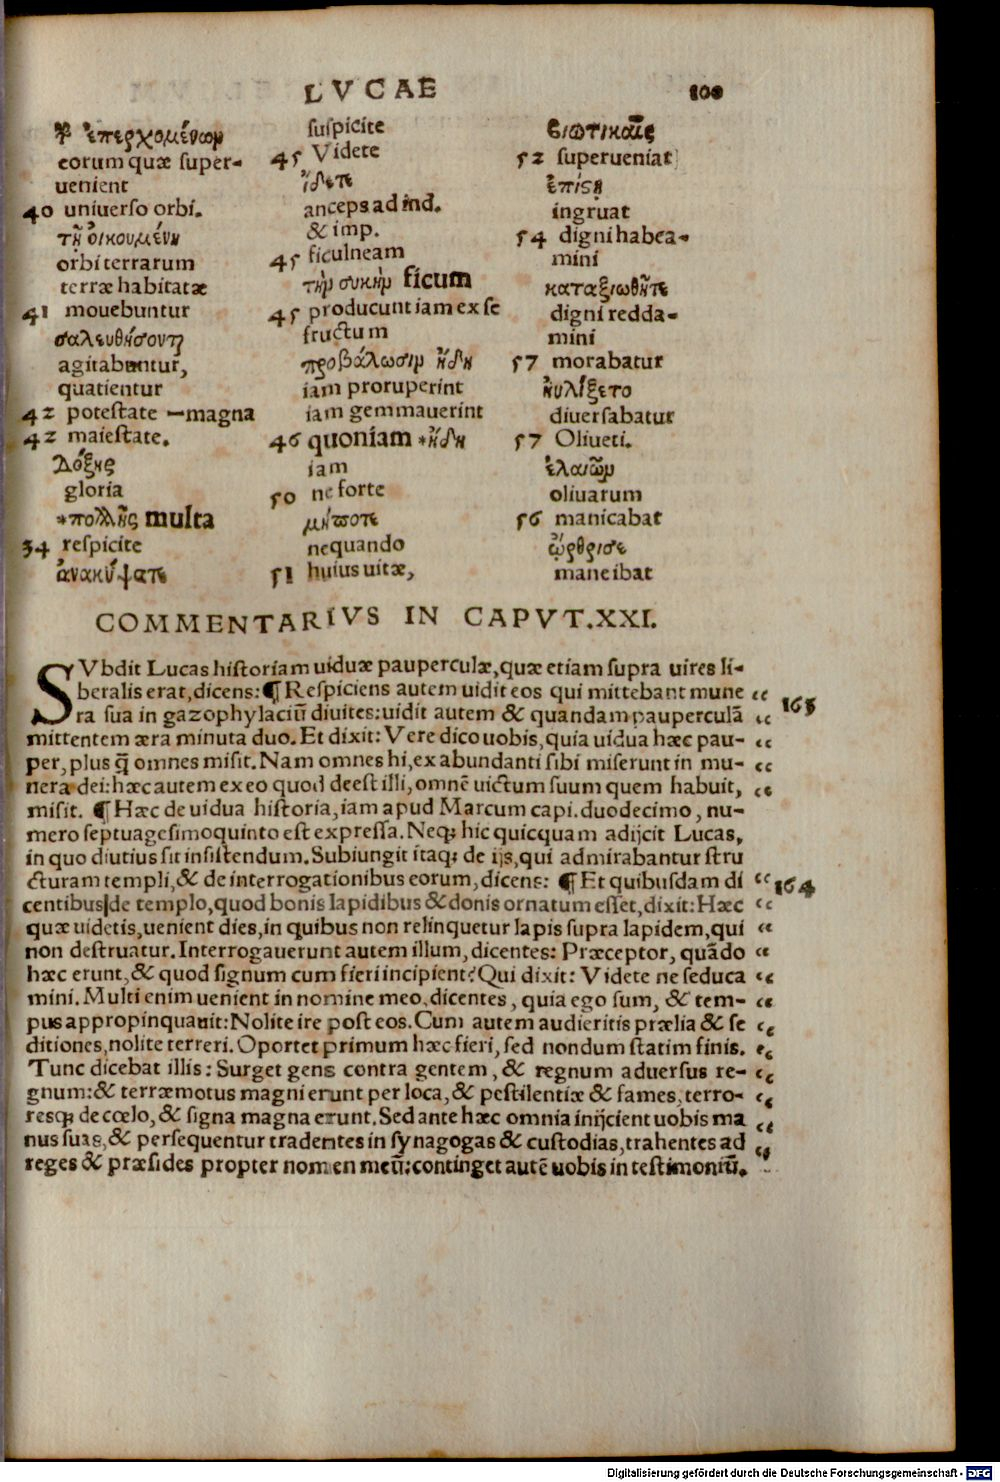 LVCAE
108
ἐπερχομένων
eorum quæ super-
uenient
40 uniuerso orbi.
τῇ οἰκουμένῃ
orbi terrarum
terræ habitatæ
41 mouebuntur
σαλευθήσονται
agitabuntur,
quatientur
42 potestate —magna
42 maiestate.
Δόξης
gloria
*πολλῆς multa
34 respicite
ἀνακύψατε
suspicite
45 Videte
ἴδετε
anceps ad ind.
& imp.
45 ficulneam
τὴν συκῆν ficum
45 producunt iam ex se
fructum
προβάλωσιν ἤδη
iam proruperint
iam gemmauerint
46 quoniam *ἤδη
iam
50 ne forte
μήποτε
nequando
51 huius uitæ,
βιωτικαῖς
52 superueniat
ἐπιστῇ
ingruat
54 digni habea-
mini
καταξιωθῆτε
digni redda-
mini
57 morabatur
ἠυλίξετο
diuersabatur
57 Oliueti.
ἐλαιῶν
oliuarum
56 manicabat
ὤρθρισε
mane ibat
COMMENTARIVS IN CAPVT.XXI.
SVbdit Lucas historiam uiduæ pauperculæ, quæ etiam supra uires li-
beralis erat, dicens: ¶ Respiciens autem uidit eos qui mittebant mune “
163
ra sua in gazophylaciū diuites: uidit autem & quandam pauperculā “
mittentem æra minuta duo. Et dixit: Vere dico uobis, quia uidua hæc pau- “
per, plus q̄ omnes misit. Nam omnes hi, ex abundanti sibi miserunt in mu- “
nera dei: hæc autem ex eo quod deest illi, omnē uictum suum quem habuit, “
misit. ¶ Hæc de uidua historia, iam apud Marcum capi. duodecimo, nu-
mero septuagesimoquinto est expressa. Neq; hic quicquam adijcit Lucas,
in quo diutius sit insistendum. Subiungit itaq; de ijs, qui admirabantur stru
cturam templi, & de interrogationibus eorum, dicens: ¶ Et quibusdam di “ 164
centibus de templo, quod bonis lapidibus & donis ornatum esset, dixit: Hæc “
quæ uidetis, uenient dies, in quibus non relinquetur lapis supra lapidem, qui “
non destruatur. Interrogauerunt autem illum, dicentes: Præceptor, quādo “
hæc erunt, & quod signum cum fieri incipient? Qui dixit: Videte ne seduca “
mini. Multi enim uenient in nomine meo, dicentes, quia ego sum, & tem- “
pus appropinquauit: Nolite ire post eos. Cum autem audieritis prælia & se “
ditiones, nolite terreri. Oportet primum hæc fieri, sed nondum statim finis. “
Tunc dicebat illis: Surget gens contra gentem, & regnum aduersus re- “
gnum: & terræmotus magni erunt per loca, & pestilentiæ & fames, terro- “
resq; de cœlo, & signa magna erunt. Sed ante hæc omnia inijcient uobis ma “
nus suas, & persequentur tradentes in synagogas & custodias, trahentes ad “
reges & præsides propter nomen meū: continget autē uobis in testimoniū.
Digitalisierung gefördert durch die Deutsche Forschungsgemeinschaft - DFG